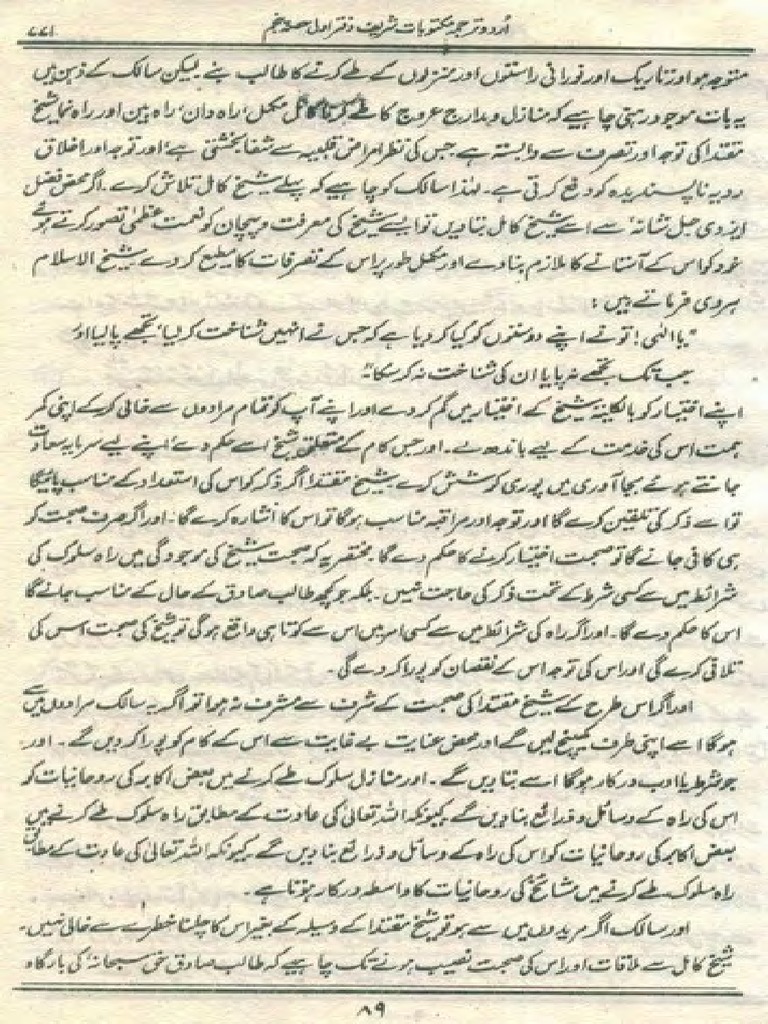 اردو ترجمہ مکتوبات شریف دفتر اول حصہ پنجم
۷۷۱
متوجہ ہو اور تاریک اور نورانی راستوں اور منزلوں کے طے کرنے کا طالب بنے لیکن سالک کے ذہن میں
یہ بات موجود رہنی چاہیے کہ منازل و مدارج عروج کا طے کرنا کامل مکمل، راہ دان، راہ بین اور راہ نما شیخ
مقتدا کی توجہ اور تصرف سے وابستہ ہے جس کی نظر امراض قلبیہ سے شفا بخشتی ہے اور توجہ اور اخلاق
رویہ ناپسندیدہ کو دفع کرتی ہے۔ لہٰذا سالک کو چاہیے کہ پہلے شیخ کامل تلاش کرے۔ اگر محض فضل
ایزدی جل شانہٗ سے اسے شیخ کامل بتا دیں تو ایسے شیخ کی معرفت و پہچان کو نعمت عظمیٰ تصور کرتے ہوئے
خود کو اس کے آستانے کا ملازم بنا دے اور مکمل طور پر اس کے تصرفات کا مطیع کر دے شیخ الاسلام
ہروی فرماتے ہیں:
"یا الٰہی! تو نے اپنے دوستوں کو کیا کر دیا ہے کہ جس نے انہیں شناخت کر لیا، تجھے پا لیا اور
جب تک تجھے نہ پایا ان کی شناخت نہ کر سکا"
اپنے اختیار کو بالکلیہ شیخ کے اختیار میں گم کر دے اور اپنے آپ کو تمام مرادوں سے خالی کر کے اپنی کمر
ہمت اس کی خدمت کے لیے باندھ لے۔ اور جس کام کے متعلق شیخ اسے حکم دے اپنے لیے سرمایہ سعادت
جانتے ہوئے بجا آوری میں پوری کوشش کرے شیخ مقتدا اگر ذکر کو اس کی استعداد کے مناسب پائیگا
تو اسے ذکر کی تلقین کرے گا اور توجہ اور مراقبہ مناسب ہوگا تو اس کا اشارہ کرے گا۔ اور اگر صرف صحبت کو
ہی کافی جانے گا تو صحبت اختیار کرنے کا حکم دے گا۔ مختصر یہ کہ صحبت شیخ کی موجودگی میں راہ سلوک کی
شرائط میں سے کسی شرط کے تحت ذکر کی حاجت نہیں۔ بلکہ جو کچھ طالب صادق کے حال کے مناسب جانے گا
اس کا حکم دے گا۔ اور اگر راہ کی شرائط میں سے کسی امر میں اس سے کوتاہی واقع ہوگی تو شیخ کی صحبت اس کی
تلافی کرے گی اور اس کی توجہ اس کے نقصان کو پورا کر دے گی۔
اور اگر اس طرح کے شیخ مقتدا کی صحبت کے شرف سے مشرف نہ ہوا تو اگر یہ سالک مرادوں میں سے
ہوگا اسے اپنی طرف کھینچ لیں گے اور محض عنایت بے غایت سے اس کے کام کو پورا کر دیں گے۔ اور
جو شرط یا ادب درکار ہوگا اسے بتا دیں گے۔ اور منازل سلوک طے کرنے میں بعض اکابر کی روحانیات کو
اس کی راہ کے وسائل و ذرائع بنا دیں گے۔ کیونکہ اللہ تعالیٰ کی عادت کے مطابق راہ سلوک طے کرنے میں
بعض اکابر کی روحانیات کو اس کی راہ کے وسائل و ذرائع بنا دیں گے۔ کیونکہ اللہ تعالیٰ کی عادت کے مطابق
راہ سلوک طے کرنے میں مشائخ کی روحانیات کا واسطہ درکار ہوتا ہے۔
اور سالک اگر مریدوں میں سے ہو تو شیخ مقتدا کے وسیلہ کے بغیر اس کا چلنا خطرے سے خالی نہیں۔
شیخ کامل سے ملاقات اور اس کی صحبت نصیب ہونے تک چاہیے کہ طالب صادق حق سبحانہٗ کی بارگاہ
۸۹